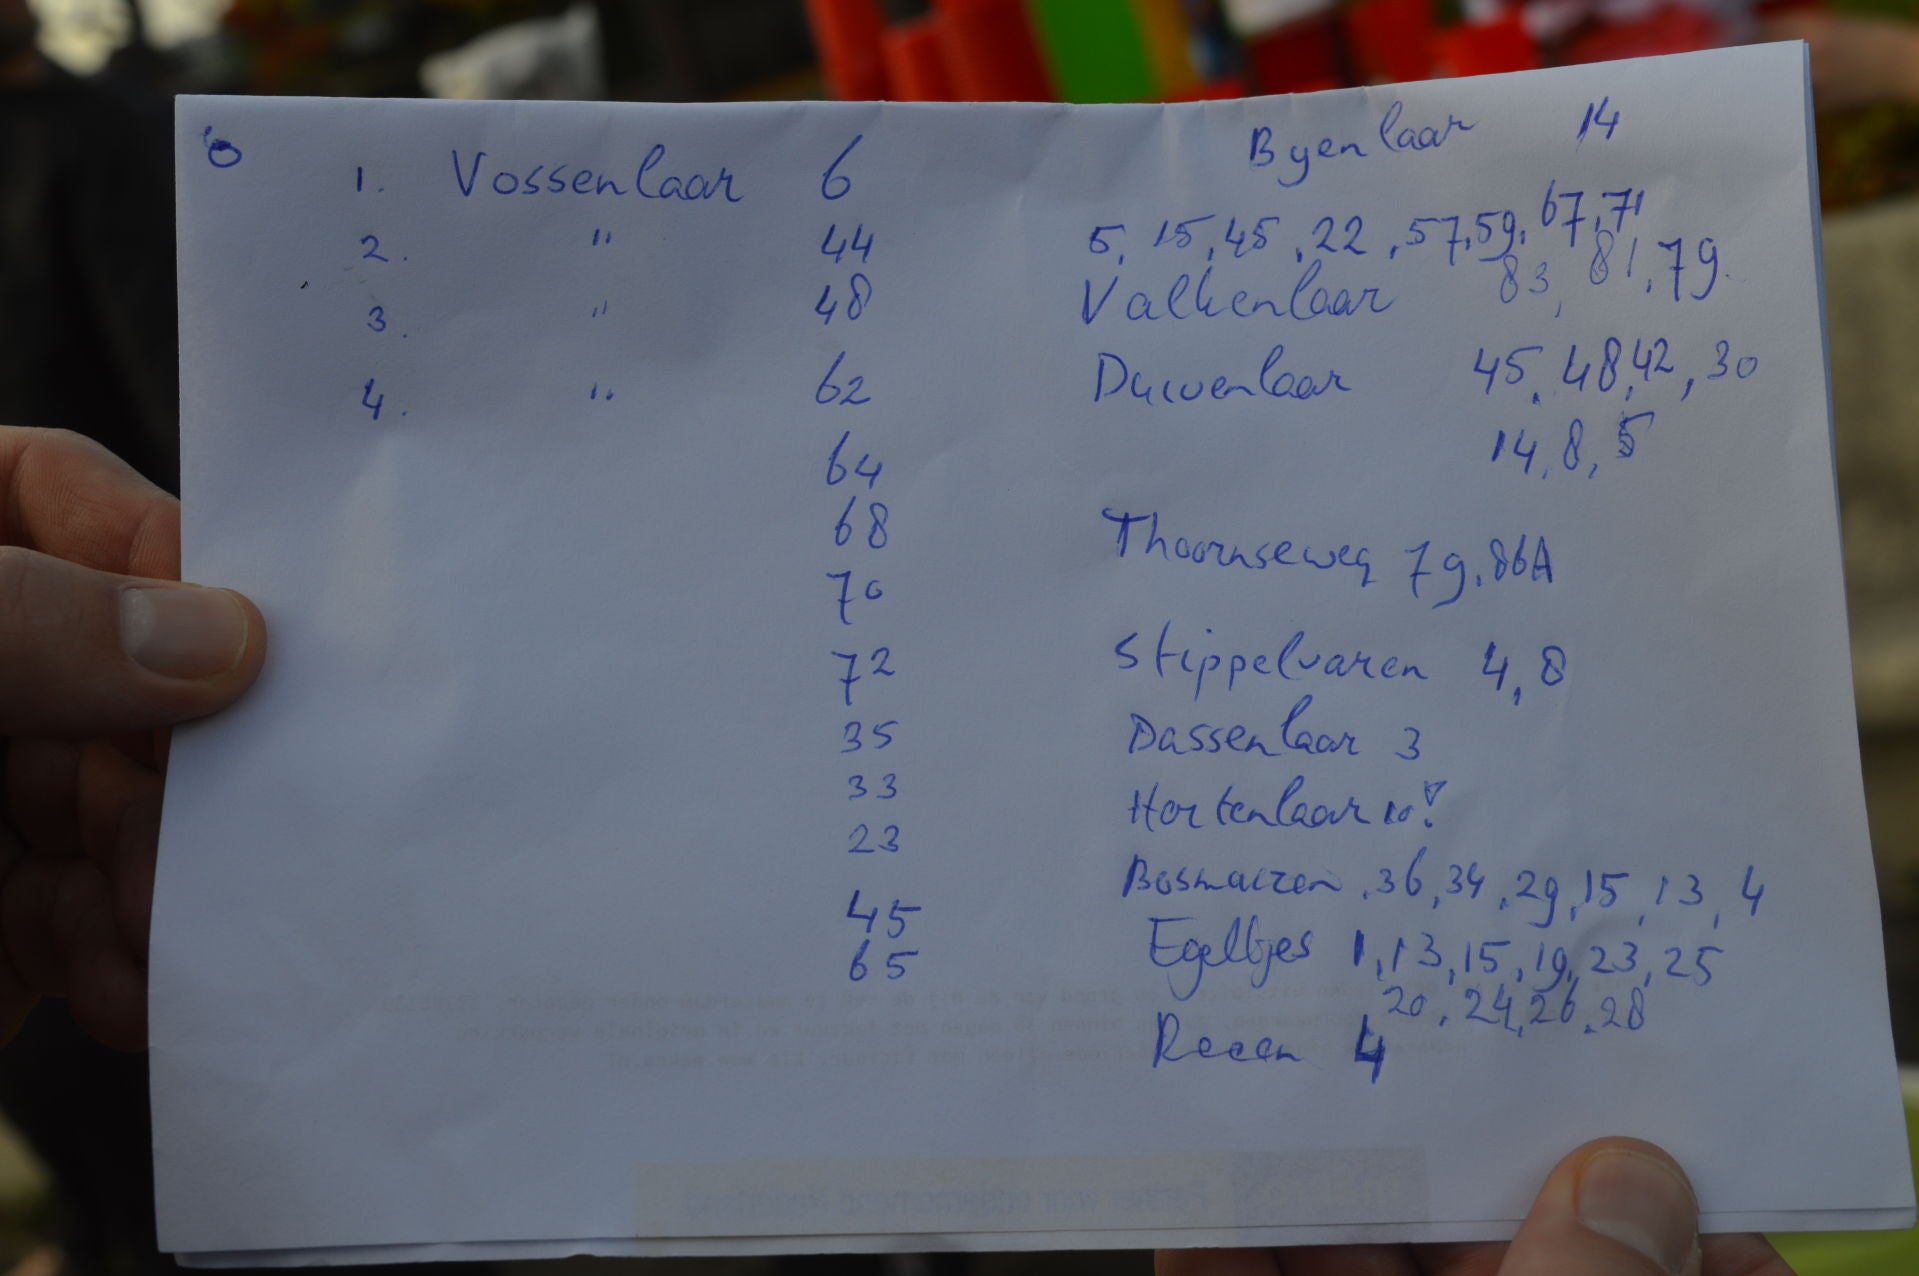 1. Vossenlaar 6
2. " 44
3. " 48
4. " 62
64
68
70
72
35
33
23
45
65
Byenlaar 14
5, 15, 45, 22, 57, 59, 67, 71
Valkenlaar 83, 81, 79
Duivenlaar 45, 48, 42, 30
14, 8, 5
Thoornseweg 79, 86A
Stippelvaren 4, 8
Dassenlaar 3
Hortenlaar 10!
Bosmairen, 36, 34, 29, 15, 13, 4
Egeltjes 1, 13, 15, 19, 23, 25
20, 24, 26, 28
Reeen 4